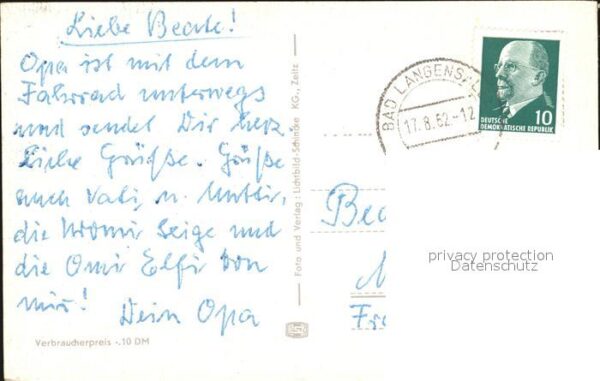 Liebe Beate!
Opa ist mit dem
Fahrrad unterwegs
und sendet Dir herz-
liche Grüße. Grüße
auch Vati, u. Mutti,
die Uromi Seige und
die Omi Elfi von
mir!
Dein Opa
Verbraucherpreis -.10 DM
Foto und Verlag: Lichtbild-Schincke KG., Zeitz
BAD LANGENSAL
17.8.62-12
10
DEUTSCHE
DEMOKRATISCHE REPUBLIK
Bea
privacy protection
Datenschutz
Fr